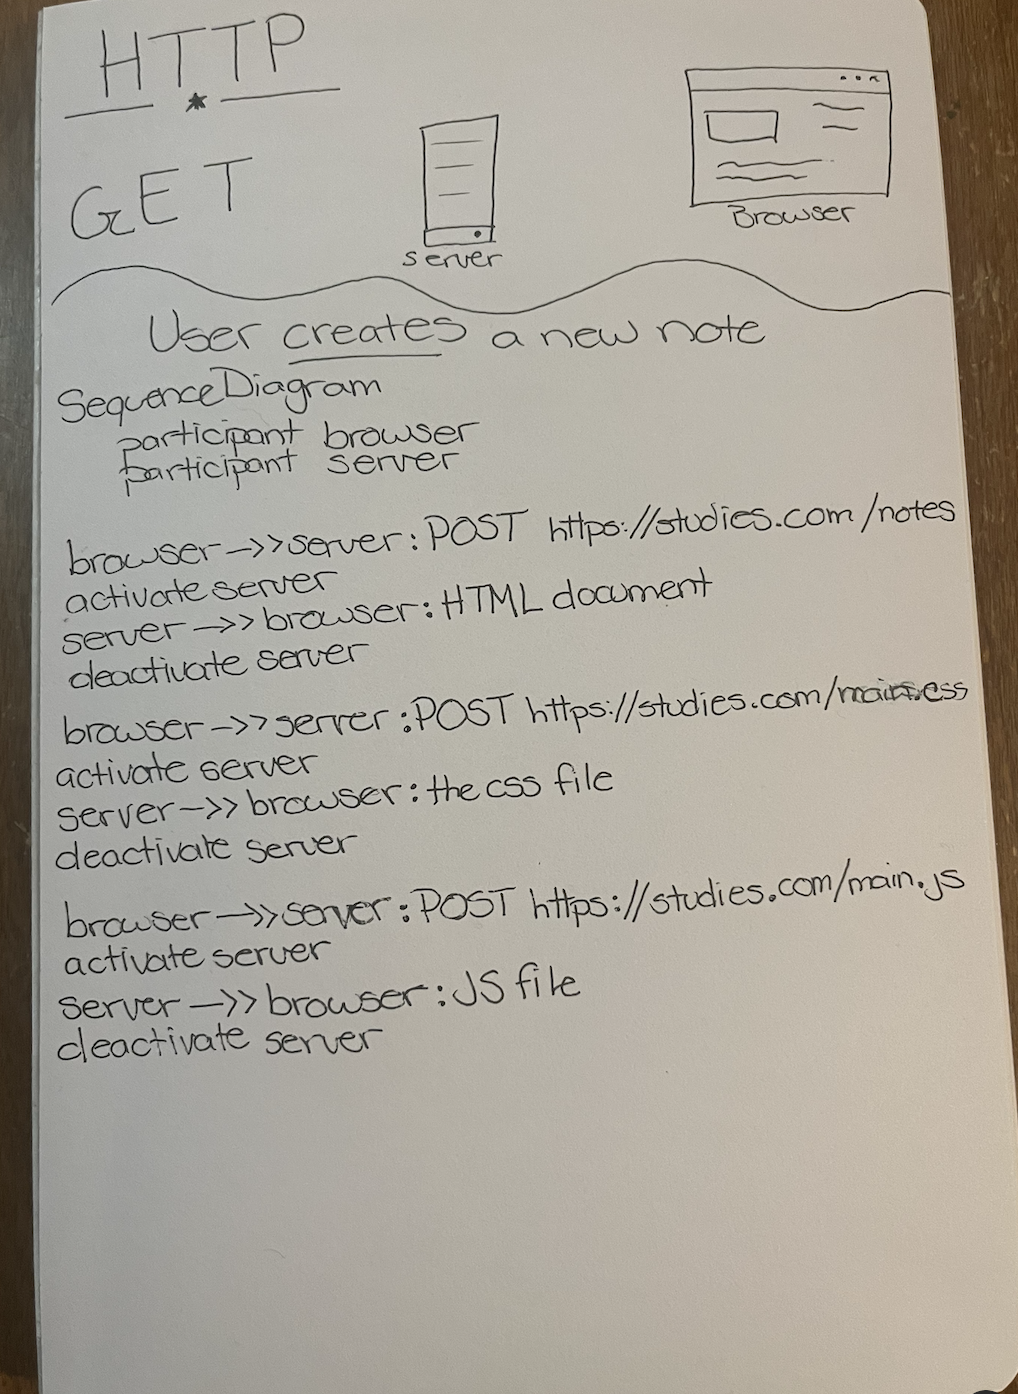 HTTP
GET
server
Browser
User creates a new note
SequenceDiagram
participant browser
participant server
browser->>server: POST https://studies.com/notes
activate server
server->>browser: HTML document
deactivate server
browser->>server: POST https://studies.com/main.css
activate server
server->>browser: the css file
deactivate server
browser->>server: POST https://studies.com/main.js
activate server
server->>browser: JS file
deactivate server